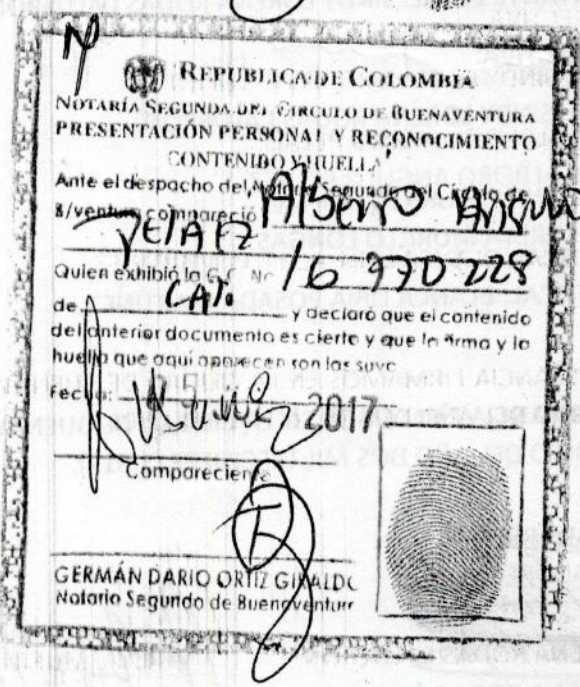 REPUBLICA DE COLOMBIA
NOTARÍA SEGUNDA DEL CIRCULO DE BUENAVENTURA
PRESENTACIÓN PERSONAL Y RECONOCIMIENTO
CONTENIDO Y HUELLA
Ante el despacho del Notario Segundo del Circulo de
B/ventura compareció Alberto Angulo
Quien exhibió la C.C. No 16 970 228
de CAT. y declaró que el contenido
del anterior documento es cierto y que la firma y la
huella que aqui aparecen son las suya
Fecha: 2017
Compareciente
GERMÁN DARIO ORTIZ GIRALDO
Notario Segundo de Buenaventura